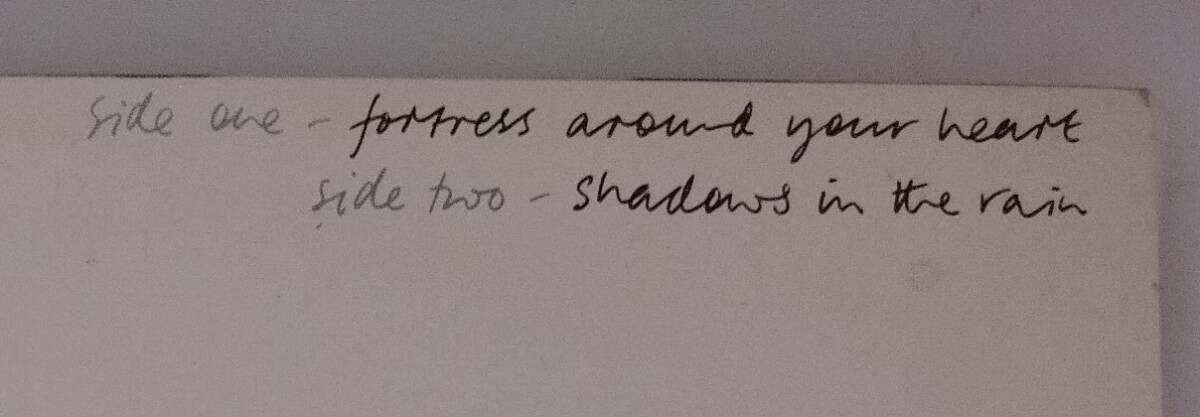 side one - fortress around your heart
side two - shadows in the rain